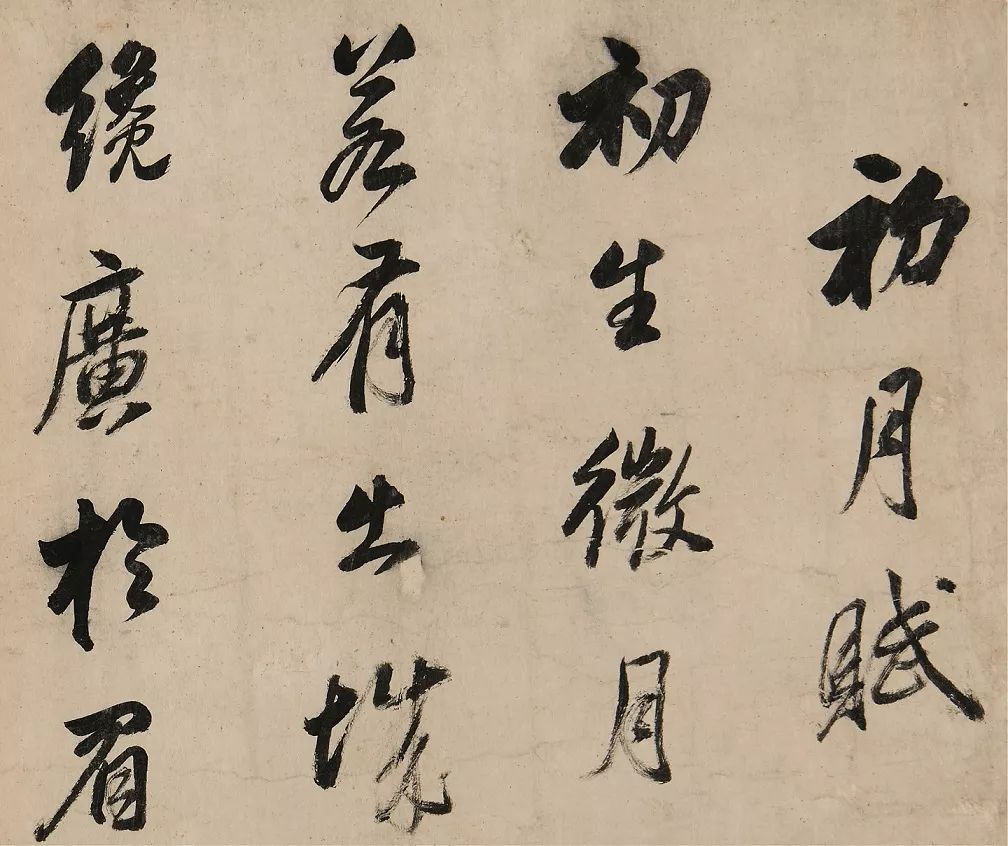 初月賦
初生微月
若有出
纔廣於眉